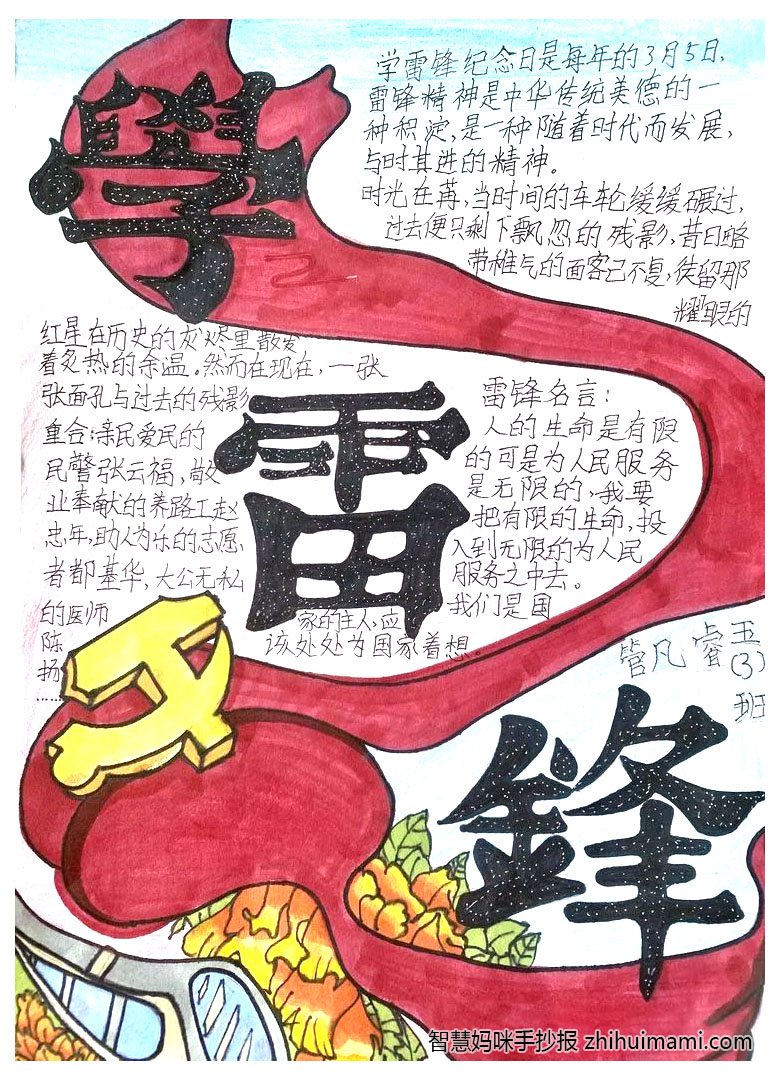 學
雷
鋒
学雷锋纪念日是每年的3月5日,
雷锋精神是中华传统美德的一
种积淀,是一种随着时代而发展,
与时其进的精神。
时光在苒,当时间的车轮缓缓碾过,
过去便只剩下飘忽的残影,昔日略
带稚气的面容已不复,徒留那
耀眼的
红星在历史的灰烬里散发
着炙热的余温。然而在现在,一张
张面孔与过去的残影
重合:亲民爱民的
民警张云福,敬
业奉献的养路工赵
忠年,助人为乐的志愿
者都基华,大公无私
的医师
陈
扬
......
雷锋名言:
人的生命是有限
的可是为人民服务
是无限的,我要
把有限的生命,投
入到无限的为人民
服务之中去。
我们是国
家的主人,应
该处处为国家着想。
五
管凡睿(3)
班
智慧妈咪手抄报 zhihuimami.com